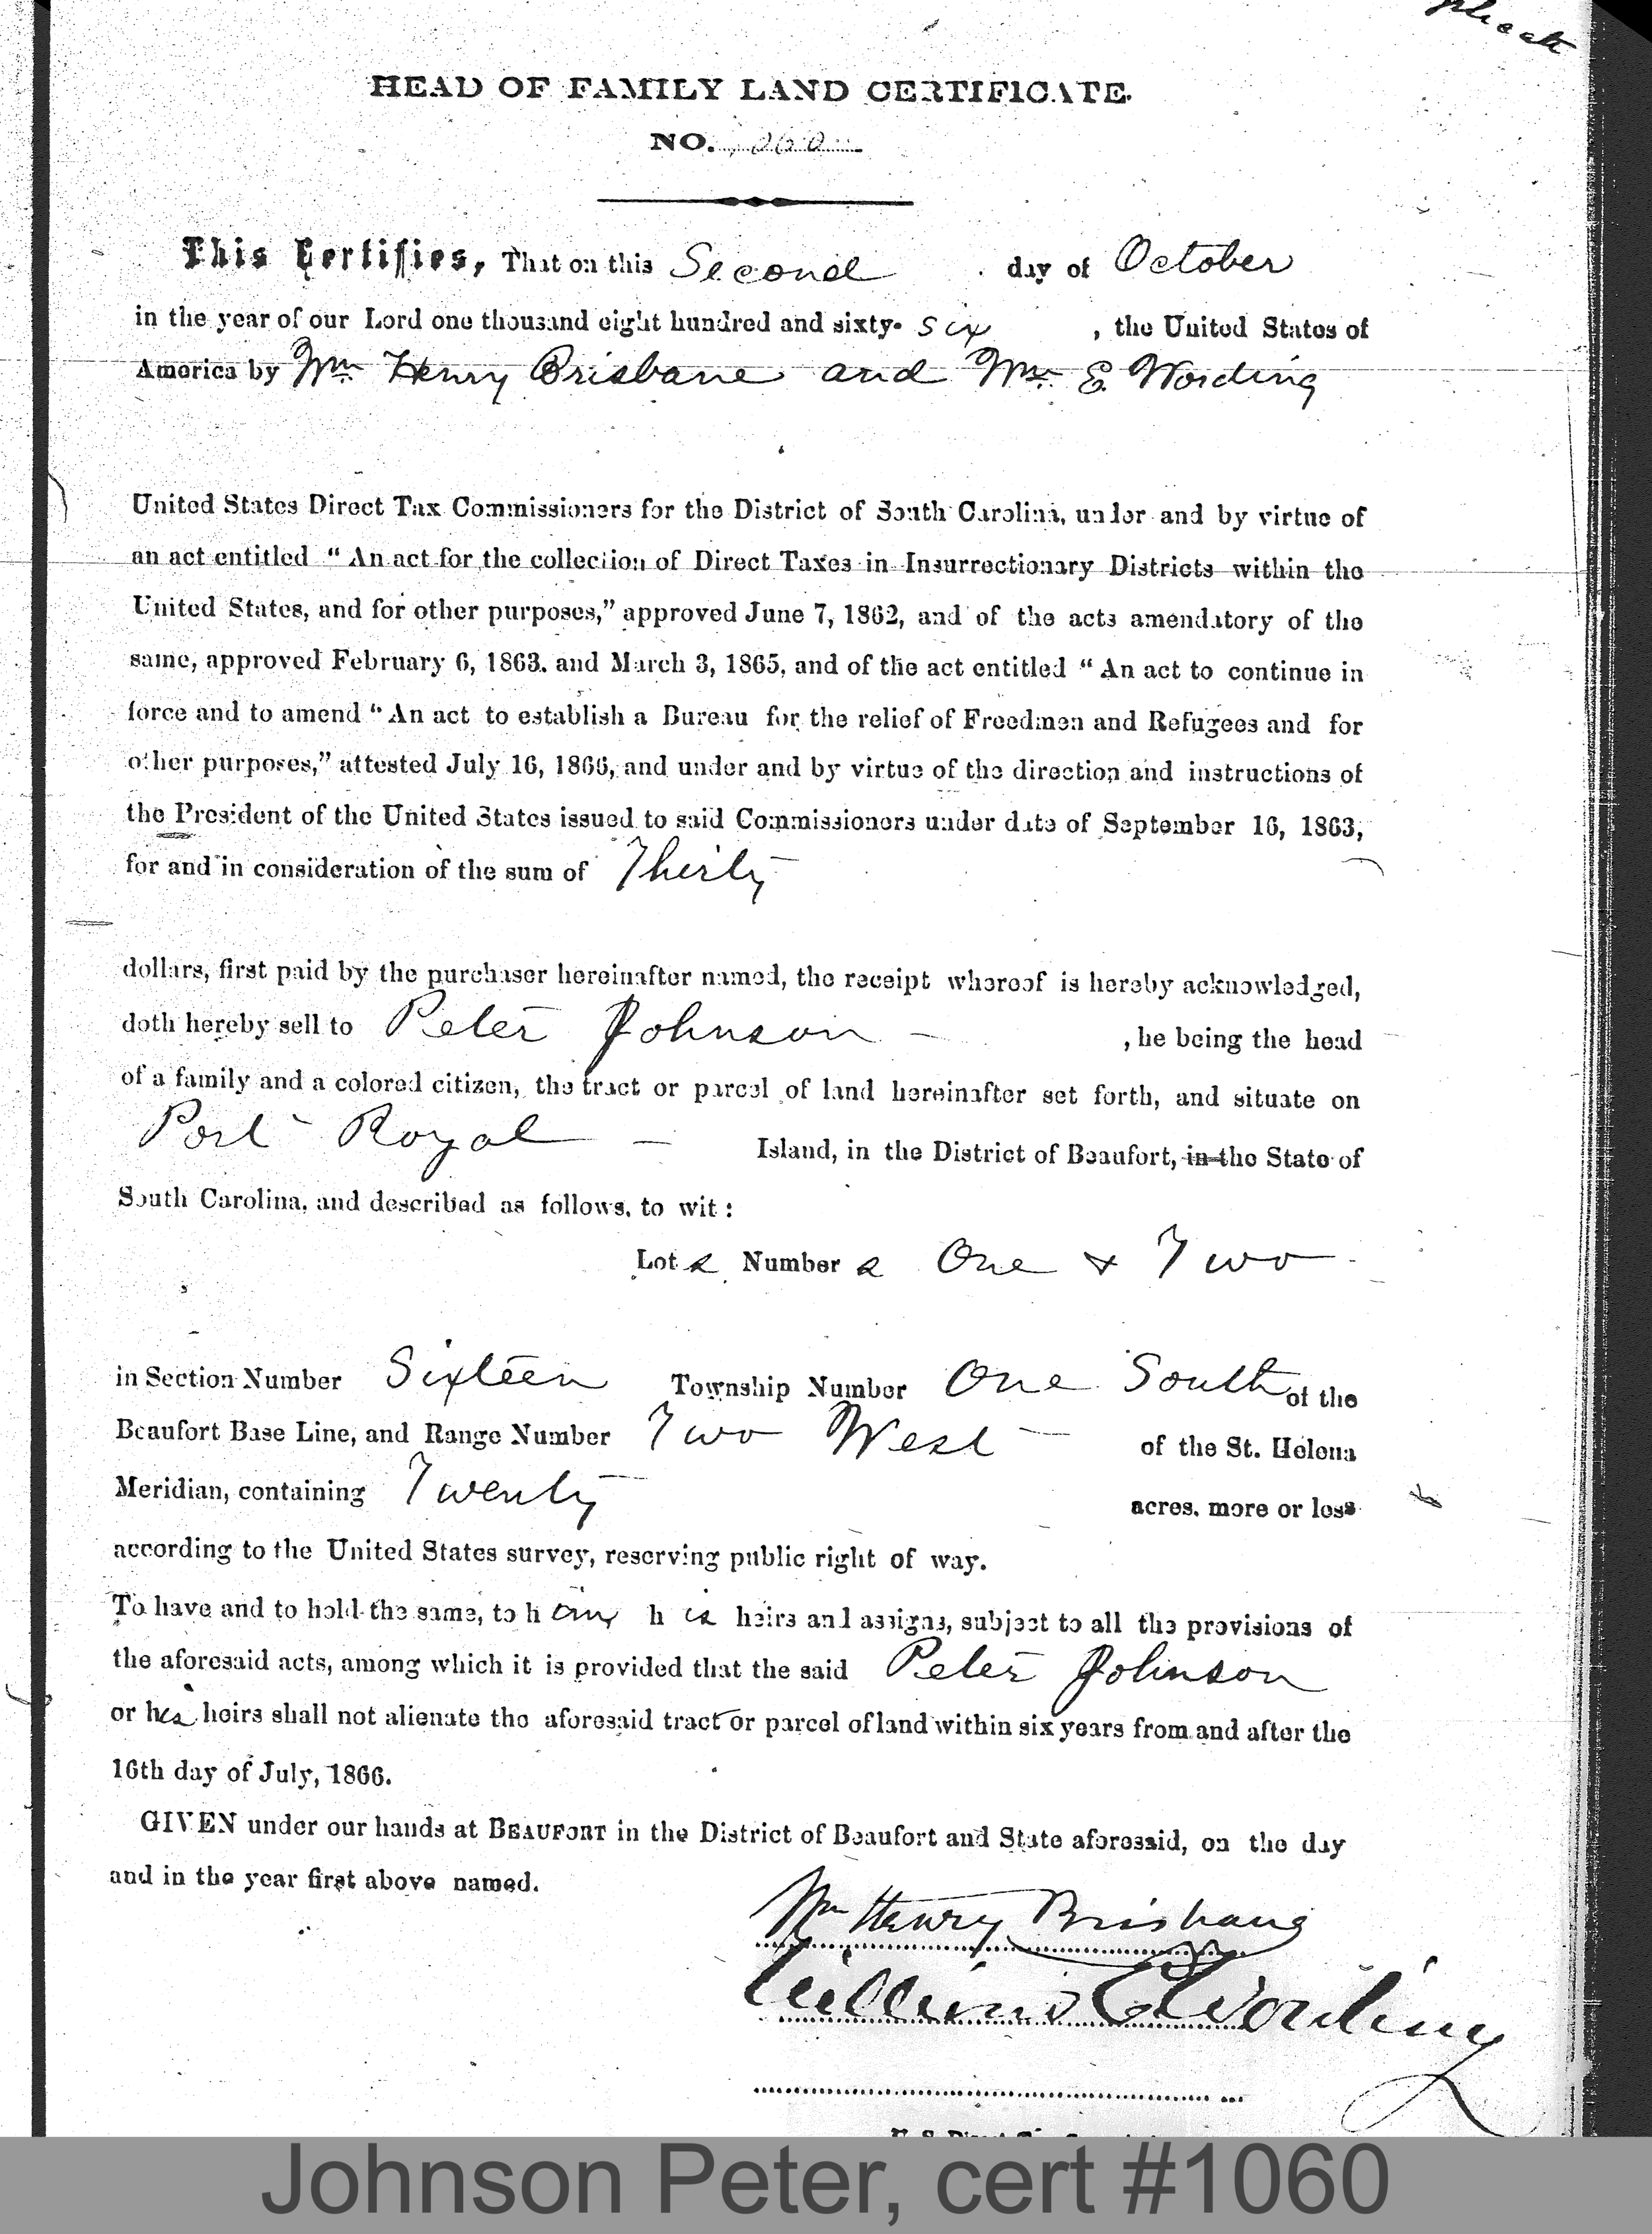 plicate
HEAD OF FAMILY LAND CERTIFICATE.
NO. 1060
This Certifies, That on this Second day of October
in the year of our Lord one thousand eight hundred and sixty- six , the United States of
America by Wm. Henry Brisbane and Wm. E. Wording
United States Direct Tax Commissioners for the District of South Carolina, under and by virtue of
an act entitled “ An act for the collection of Direct Taxes in Insurrectionary Districts within the
United States, and for other purposes,” approved June 7, 1862, and of the acts amendatory of the
same, approved February 6, 1863. and March 3, 1865, and of the act entitled “ An act to continue in
force and to amend “ An act to establish a Bureau for the relief of Freedmen and Refugees and for
other purposes,” attested July 16, 1866, and under and by virtue of the direction and instructions of
the President of the United States issued to said Commissioners under date of September 16, 1863,
for and in consideration of the sum of Thirty
dollars, first paid by the purchaser hereinafter named, the receipt whereof is hereby acknowledged,
doth hereby sell to Peter Johnson , he being the head
of a family and a colored citizen, the tract or parcel of land hereinafter set forth, and situate on
Port Royal — Island, in the District of Beaufort, in the State of
South Carolina, and described as follows, to wit :
Lot s Number s One & Two
in Section Number Sixteen Township Number One South of the
Beaufort Base Line, and Range Number Two West of the St. Helena
Meridian, containing Twenty acres, more or less
according to the United States survey, reserving public right of way.
To have and to hold the same, to h im h is heirs and assigns, subject to all the provisions of
the aforesaid acts, among which it is provided that the said Peter Johnson
or his heirs shall not alienate the aforesaid tract or parcel of land within six years from and after the
16th day of July, 1866.
GIVEN under our hands at BEAUFORT in the District of Beaufort and State aforesaid, on the day
and in the year first above named.
Wm Henry Brisbane
William E. Wording
Johnson Peter, cert #1060